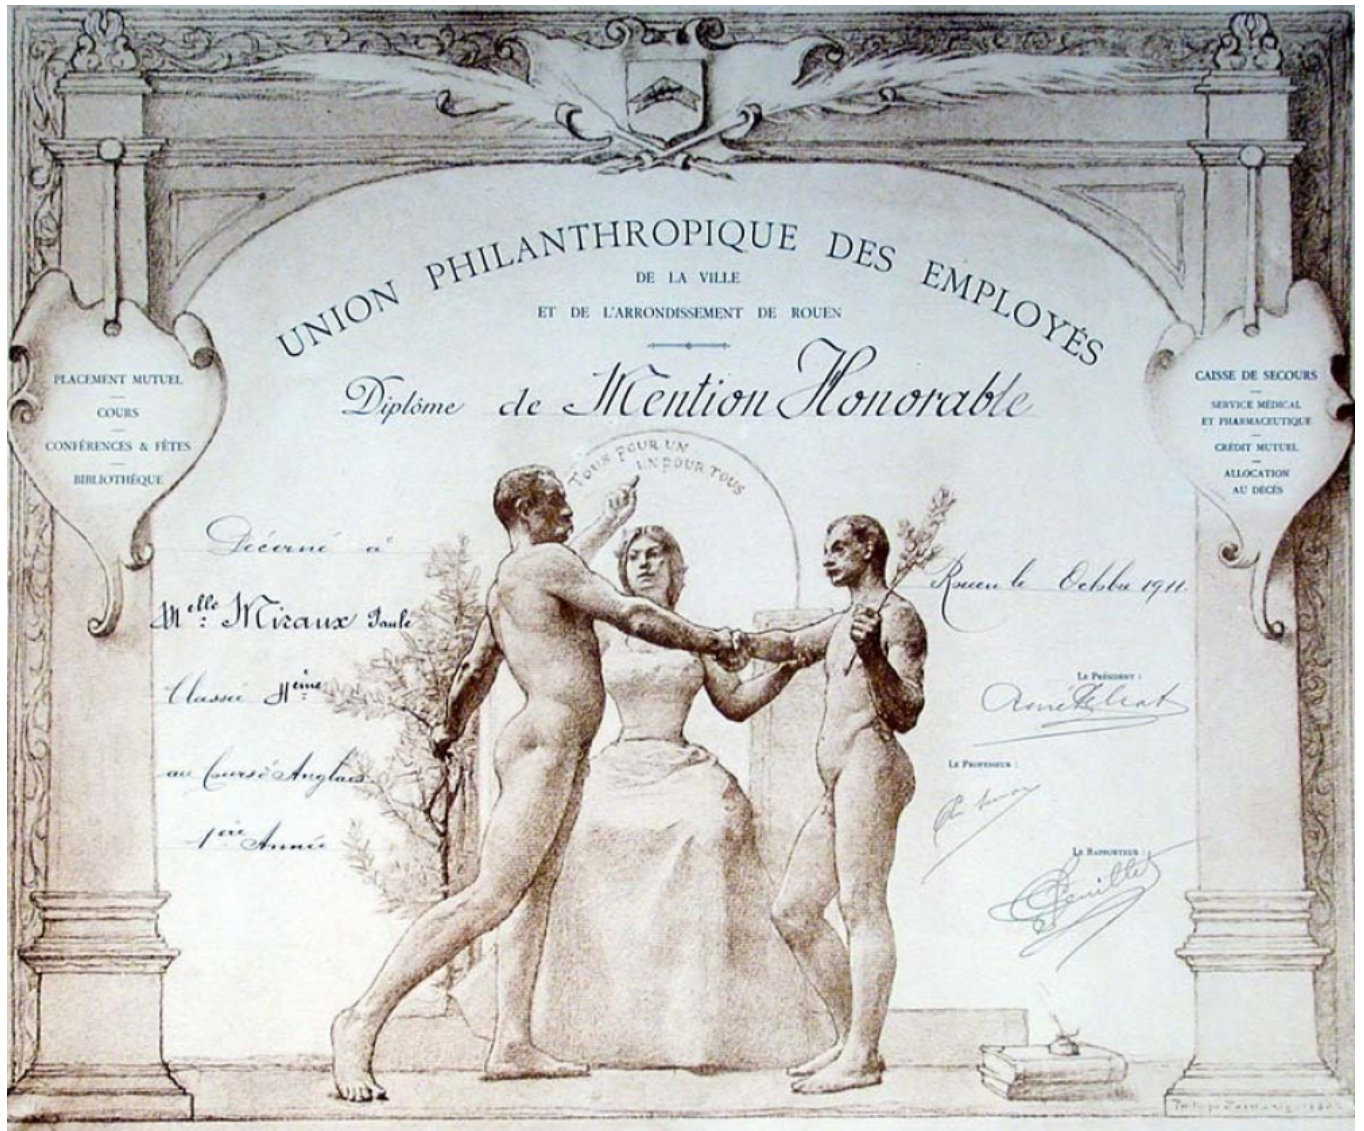 UNION PHILANTHROPIQUE DES EMPLOYÉS
DE LA VILLE
ET DE L'ARRONDISSEMENT DE ROUEN
Diplôme de Mention Honorable
PLACEMENT MUTUEL
COURS
CONFÉRENCES & FÊTES
BIBLIOTHÈQUE
CAISSE DE SECOURS
SERVICE MÉDICAL
ET PHARMACEUTIQUE
CRÉDIT MUTUEL
ALLOCATION
AU DÉCÈS
TOUS POUR UN
UN POUR TOUS
Décerné à
Melle Miraux Paule
Classée
au Cours d'Anglais
1ère Année
Rouen le Octobre 1911.
LE PRÉSIDENT :
LE PROFESSEUR :
LE RAPPORTEUR :